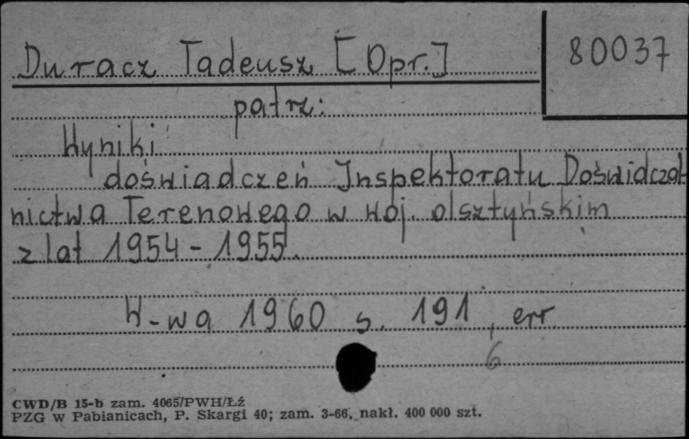 Duracz Tadeusz [Opr.]
80037
patrz:
Wyniki
doświadczeń Inspektoratu Doświadczal-
nictwa Terenowego w woj. olsztyńskim
z lat 1954-1955.
W-wa 1960 s. 191, err
6
CWD/B 15-b zam. 4065/PWH/Łź
PZG w Pabianicach, P. Skargi 40; zam. 3-66, nakł. 400 000 szt.